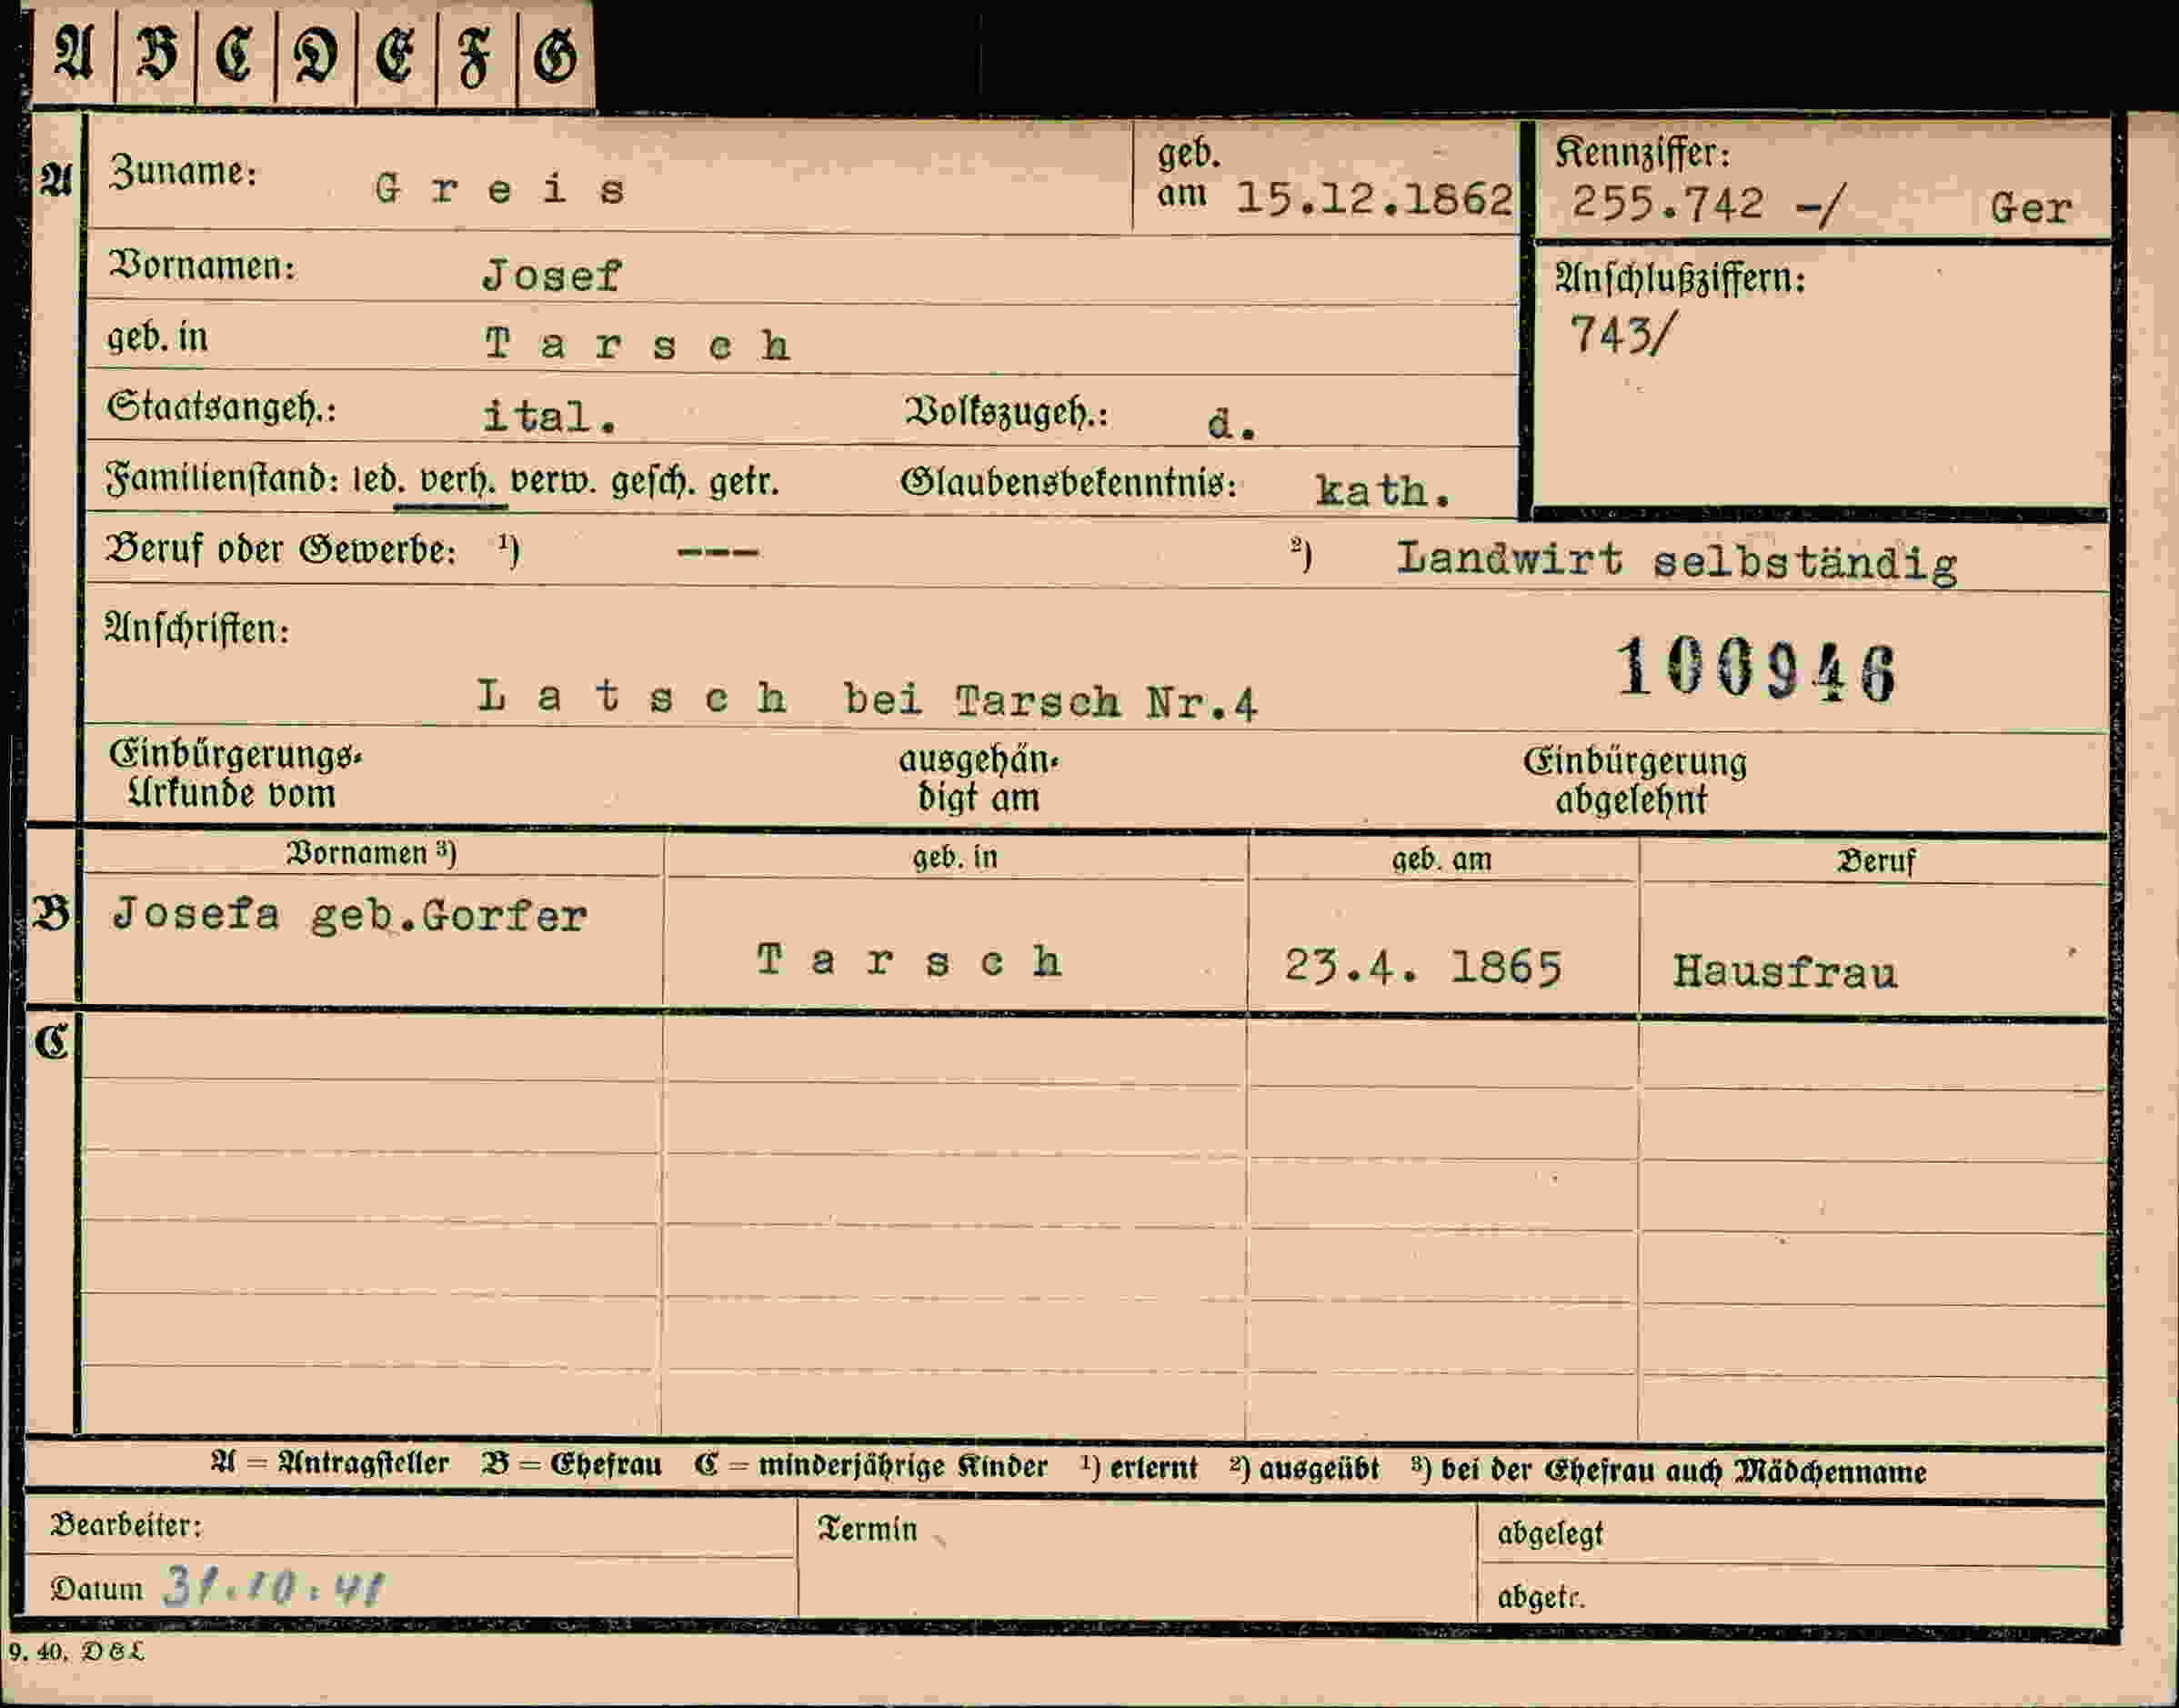 A B C D E F G
A Zuname: Greis geb. am 15.12.1862 Kennziffer: 255.742 -/ Ger
Vornamen: Josef Anschlußziffern:
geb. in Tarsch 743/
Staatsangeh.: ital. Volkszugeh.: d.
Familienstand: led. verh. verw. gesch. getr. Glaubensbekenntnis: kath.
Beruf oder Gewerbe: ¹) --- ²) Landwirt selbständig
Anschriften: 100946
Latsch bei Tarsch Nr.4
Einbürgerungs- ausgehän- Einbürgerung
Urkunde vom digt am abgelehnt
Vornamen ³) geb. in geb. am Beruf
B Josefa geb.Gorfer
Tarsch 23.4. 1865 Hausfrau
C
A = Antragsteller B = Ehefrau C = minderjährige Kinder ¹) erlernt ²) ausgeübt ³) bei der Ehefrau auch Mädchenname
Bearbeiter: Termin abgelegt
Datum 31.10.41 abgetr.
9. 40. D&L